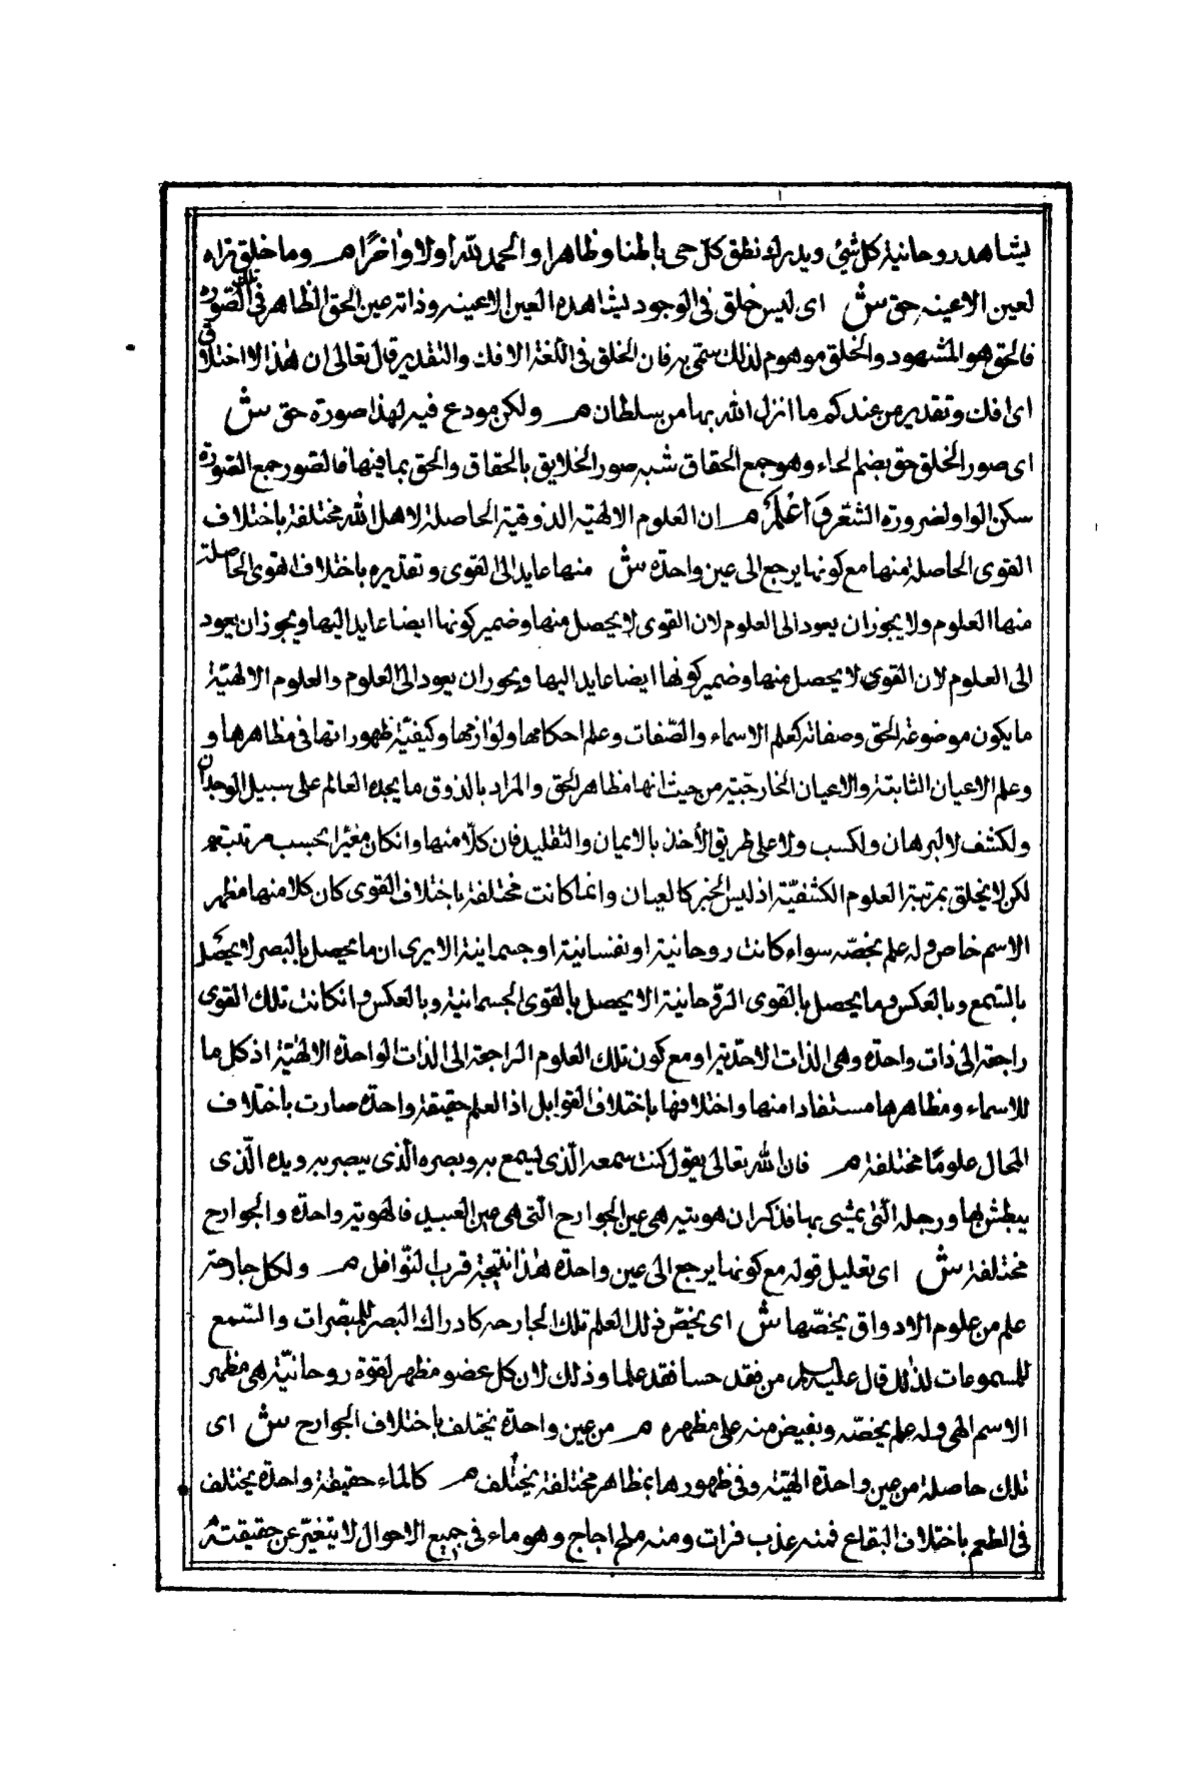 يشاهد روحانية كل شئ ويدرك نطق كل حى باطنا وظاهرا والحمد لله اولا واخرًا م وما خلق تراه
لعين الا عينه حق ش اى ليس خلق فى الوجود يشاهده العين الا عينه وذاته عين الحق الظاهر فى تلك الصورة
فالحق هو المشهود والخلق موهوم لذلك سمى به فان الخلق فى اللغة الافك والتقدير قال تعالى ان هذا الا اختلاق
اى افك وتقدير من عندكم ما انزل الله بها من سلطان م ولكن مودع فيه لهذا صورة حق ش
اى صور الخلق حق بضم الحاء وهو جمع الحقاق شبه صور الخلايق بالحقاق والحق بما فيها فالصور جمع الصورة
سكن الواو لضرورة الشعر وَ اعْلَمْ م ان العلوم الالهية الذوقية الحاصلة لاهل الله مختلفة باختلاف
القوى الحاصلة منها مع كونها يرجع الى عين واحدة ش منها عايد الى القوى وتقديره باختلاف القوى الحاصلة
منها العلوم ولا يجوز ان يعود الى العلوم لان القوى لا يحصل منها وضمير كونها ايضا عايد اليها ويجوز ان يعود
الى العلوم لان القوى لا يحصل منها وضمير كونها ايضا عايد اليها ويجوز ان يعود الى العلوم والعلوم الالهية
ما يكون موضوعه الحق وصفاته كعلم الاسماء والصّفات وعلم احكامها ولوازمها وكيفيّة ظهوراتها فى مظاهرها و
وعلم الاعيان الثابتة والاعيان الخارجيّة من حيث انها مظاهر الحق والمراد بالذوق ما يجده العالم على سبيل الوجدان
ولكشف لا البرهان ولكسب ولا على طريق الأخذ بالايمان والتقليد فان كلّا منها وانكان معتبرا بحسب مرتبته
لكن لا يخلق بمرتبة العلوم الكشفيّة اذ ليس الخبر كالعيان وانما كانت مختلفة باختلاف القوى كان كلا منها مظهر
الاسم خاص وله علم يخصّه سواء كانت روحانية او نفسانية او جسمانية الا يرى ان ما يحصل بالبصر لا يحصل
بالسّمع وبالعكس وما يحصل بالقوى الرّوحانية الا يحصل بالقوى الجسمانية وبالعكس وانكانت تلك القوى
راجعة الى ذات واحدة وهى الذات الاحدّية او مع كون تلك العلوم الراجعة الى الذات الواحدة الالهيّة اذ كل ما
للاسماء ومظاهرها مستفادا منها واختلافها باختلاف القوابل اذ العلم حقيقة واحدة صارت باختلاف
المحال علومًا مختلفة م فان الله تعالى يقول كنت سمعه الّذى يسمع به وبصره الّذى يبصر به ويده الّذى
يبطش بها ورجله الّتى يمشى بها فذكر ان هويته هى عين الجوارح الّتى هى عين العبد فالهوية واحدة والجوارح
مختلفة ش اى تعليل قوله مع كونها يرجع الى عين واحدة هٰذا نتيجة قرب النّوافل م ولكل جارحة
علم من علوم الاذواق يخصّها ش اى يخصّ ذلك العلم تلك الجارحة كادراك البصر للمبصّرات والسّمع
للمسموعات لذٰلك قال عليه السلام من فقد حسا فقد علما وذلك لان كل عضو مظهر لقوة روحانيّة هى مظهر
الاسم الهى وله علم يخصّه ويفيض منه على مظهره م من عين واحدة يختلف باختلاف الجوارح ش اى
تلك حاصلة من عين واحدة الهيّة وفى ظهورها بمظاهر مختلفة يختلف م كالماء حقيقة واحدة يختلف
فى الطعم باختلاف البقاع فمنه عذب فرات ومنه ملح اجاج وهو ماء فى جميع الاحوال لا يتغيّر عن حقيقته